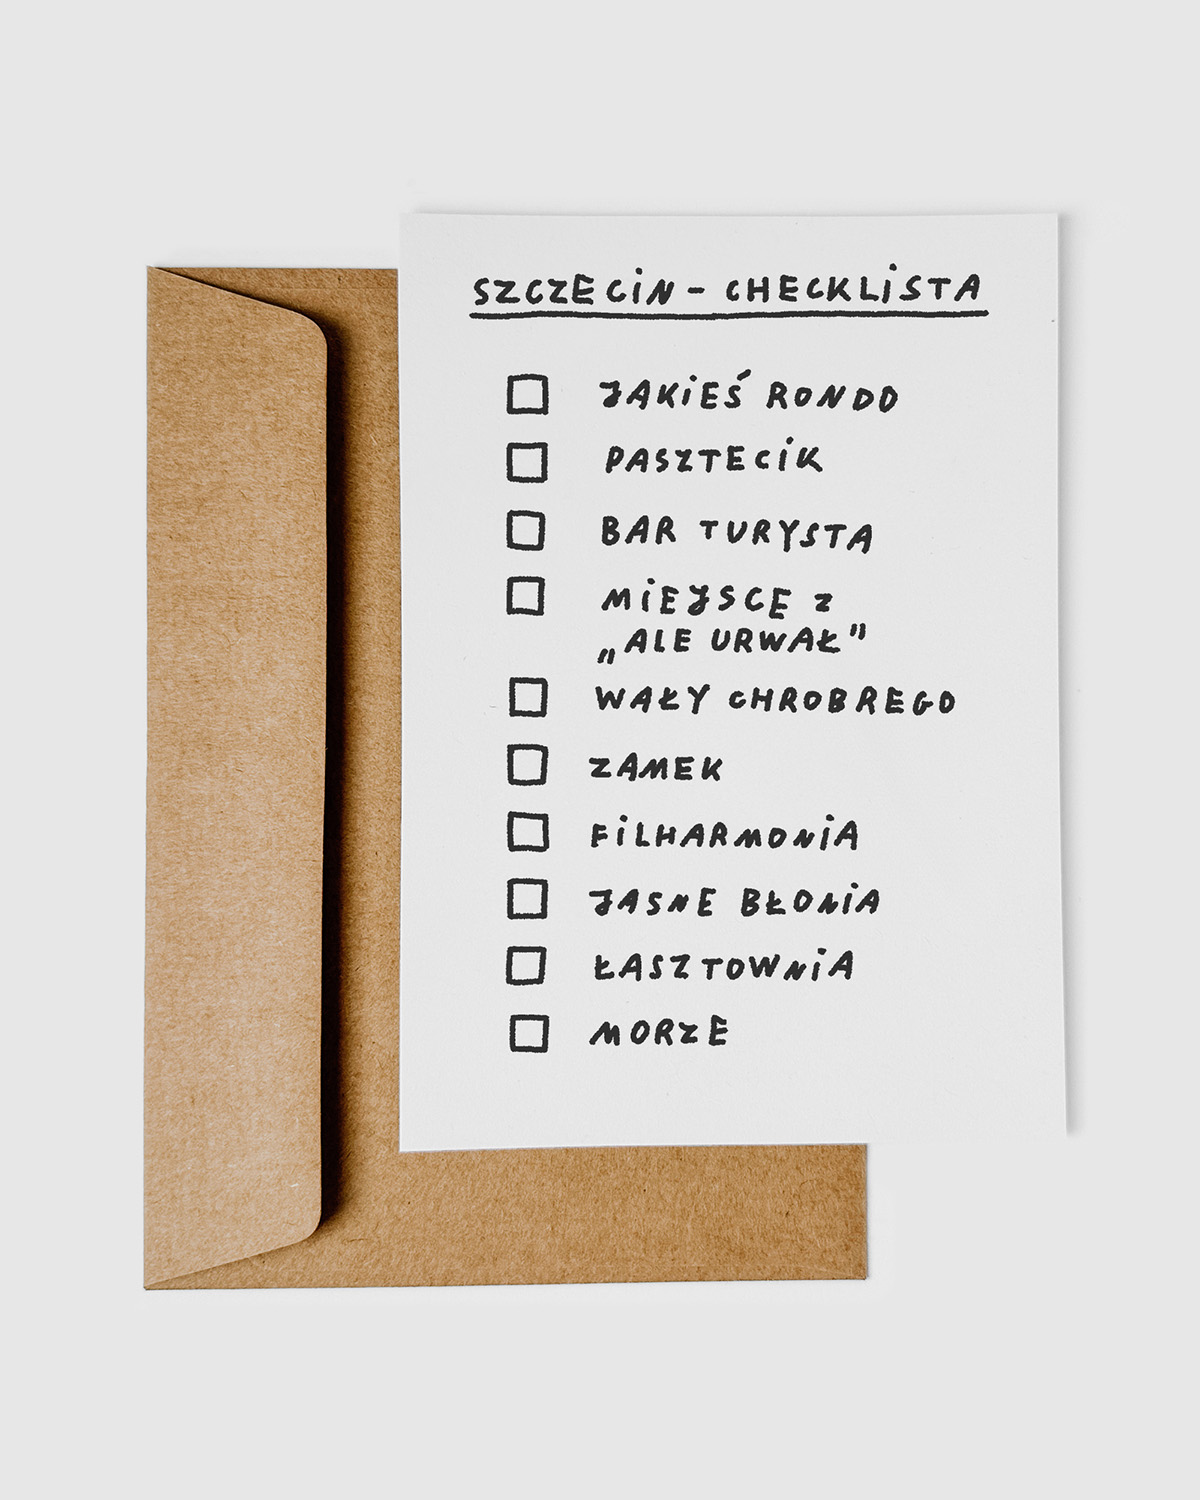 SZCZECIN - CHECKLISTA
JAKIEŚ RONDO
PASZTECIK
BAR TURYSTA
MIEJSCE Z
„ALE URWAŁ”
WAŁY CHROBREGO
ZAMEK
FILHARMONIA
JASNE BŁONIA
ŁASZTOWNIA
MORZE